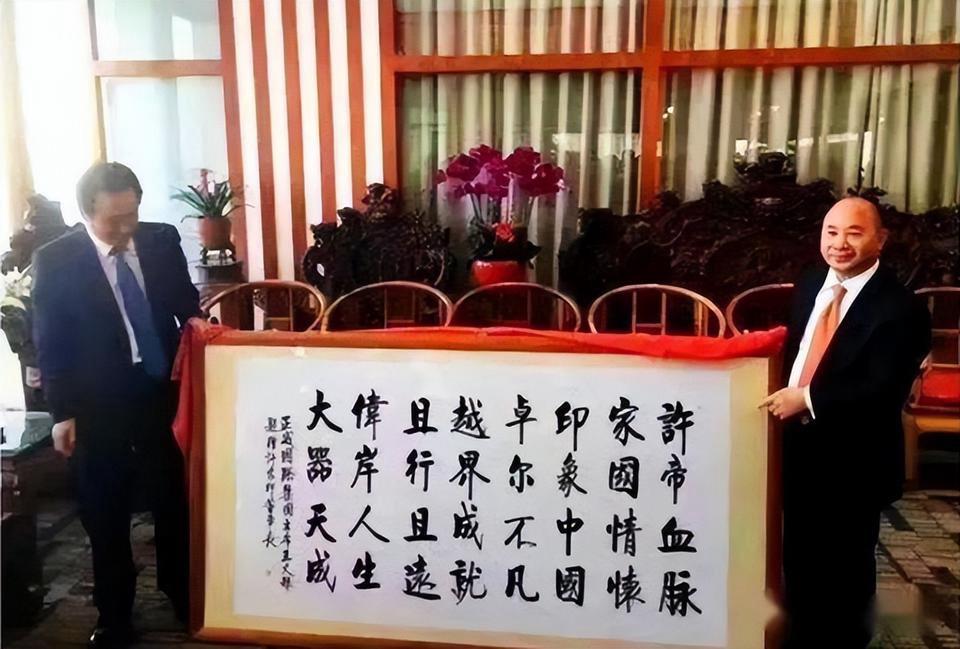 許帝血脈
家國情懷
印象中國
卓尔不凡
越界成就
且行且遠
偉岸人生
大器天成
正威國際集團主席王文銀